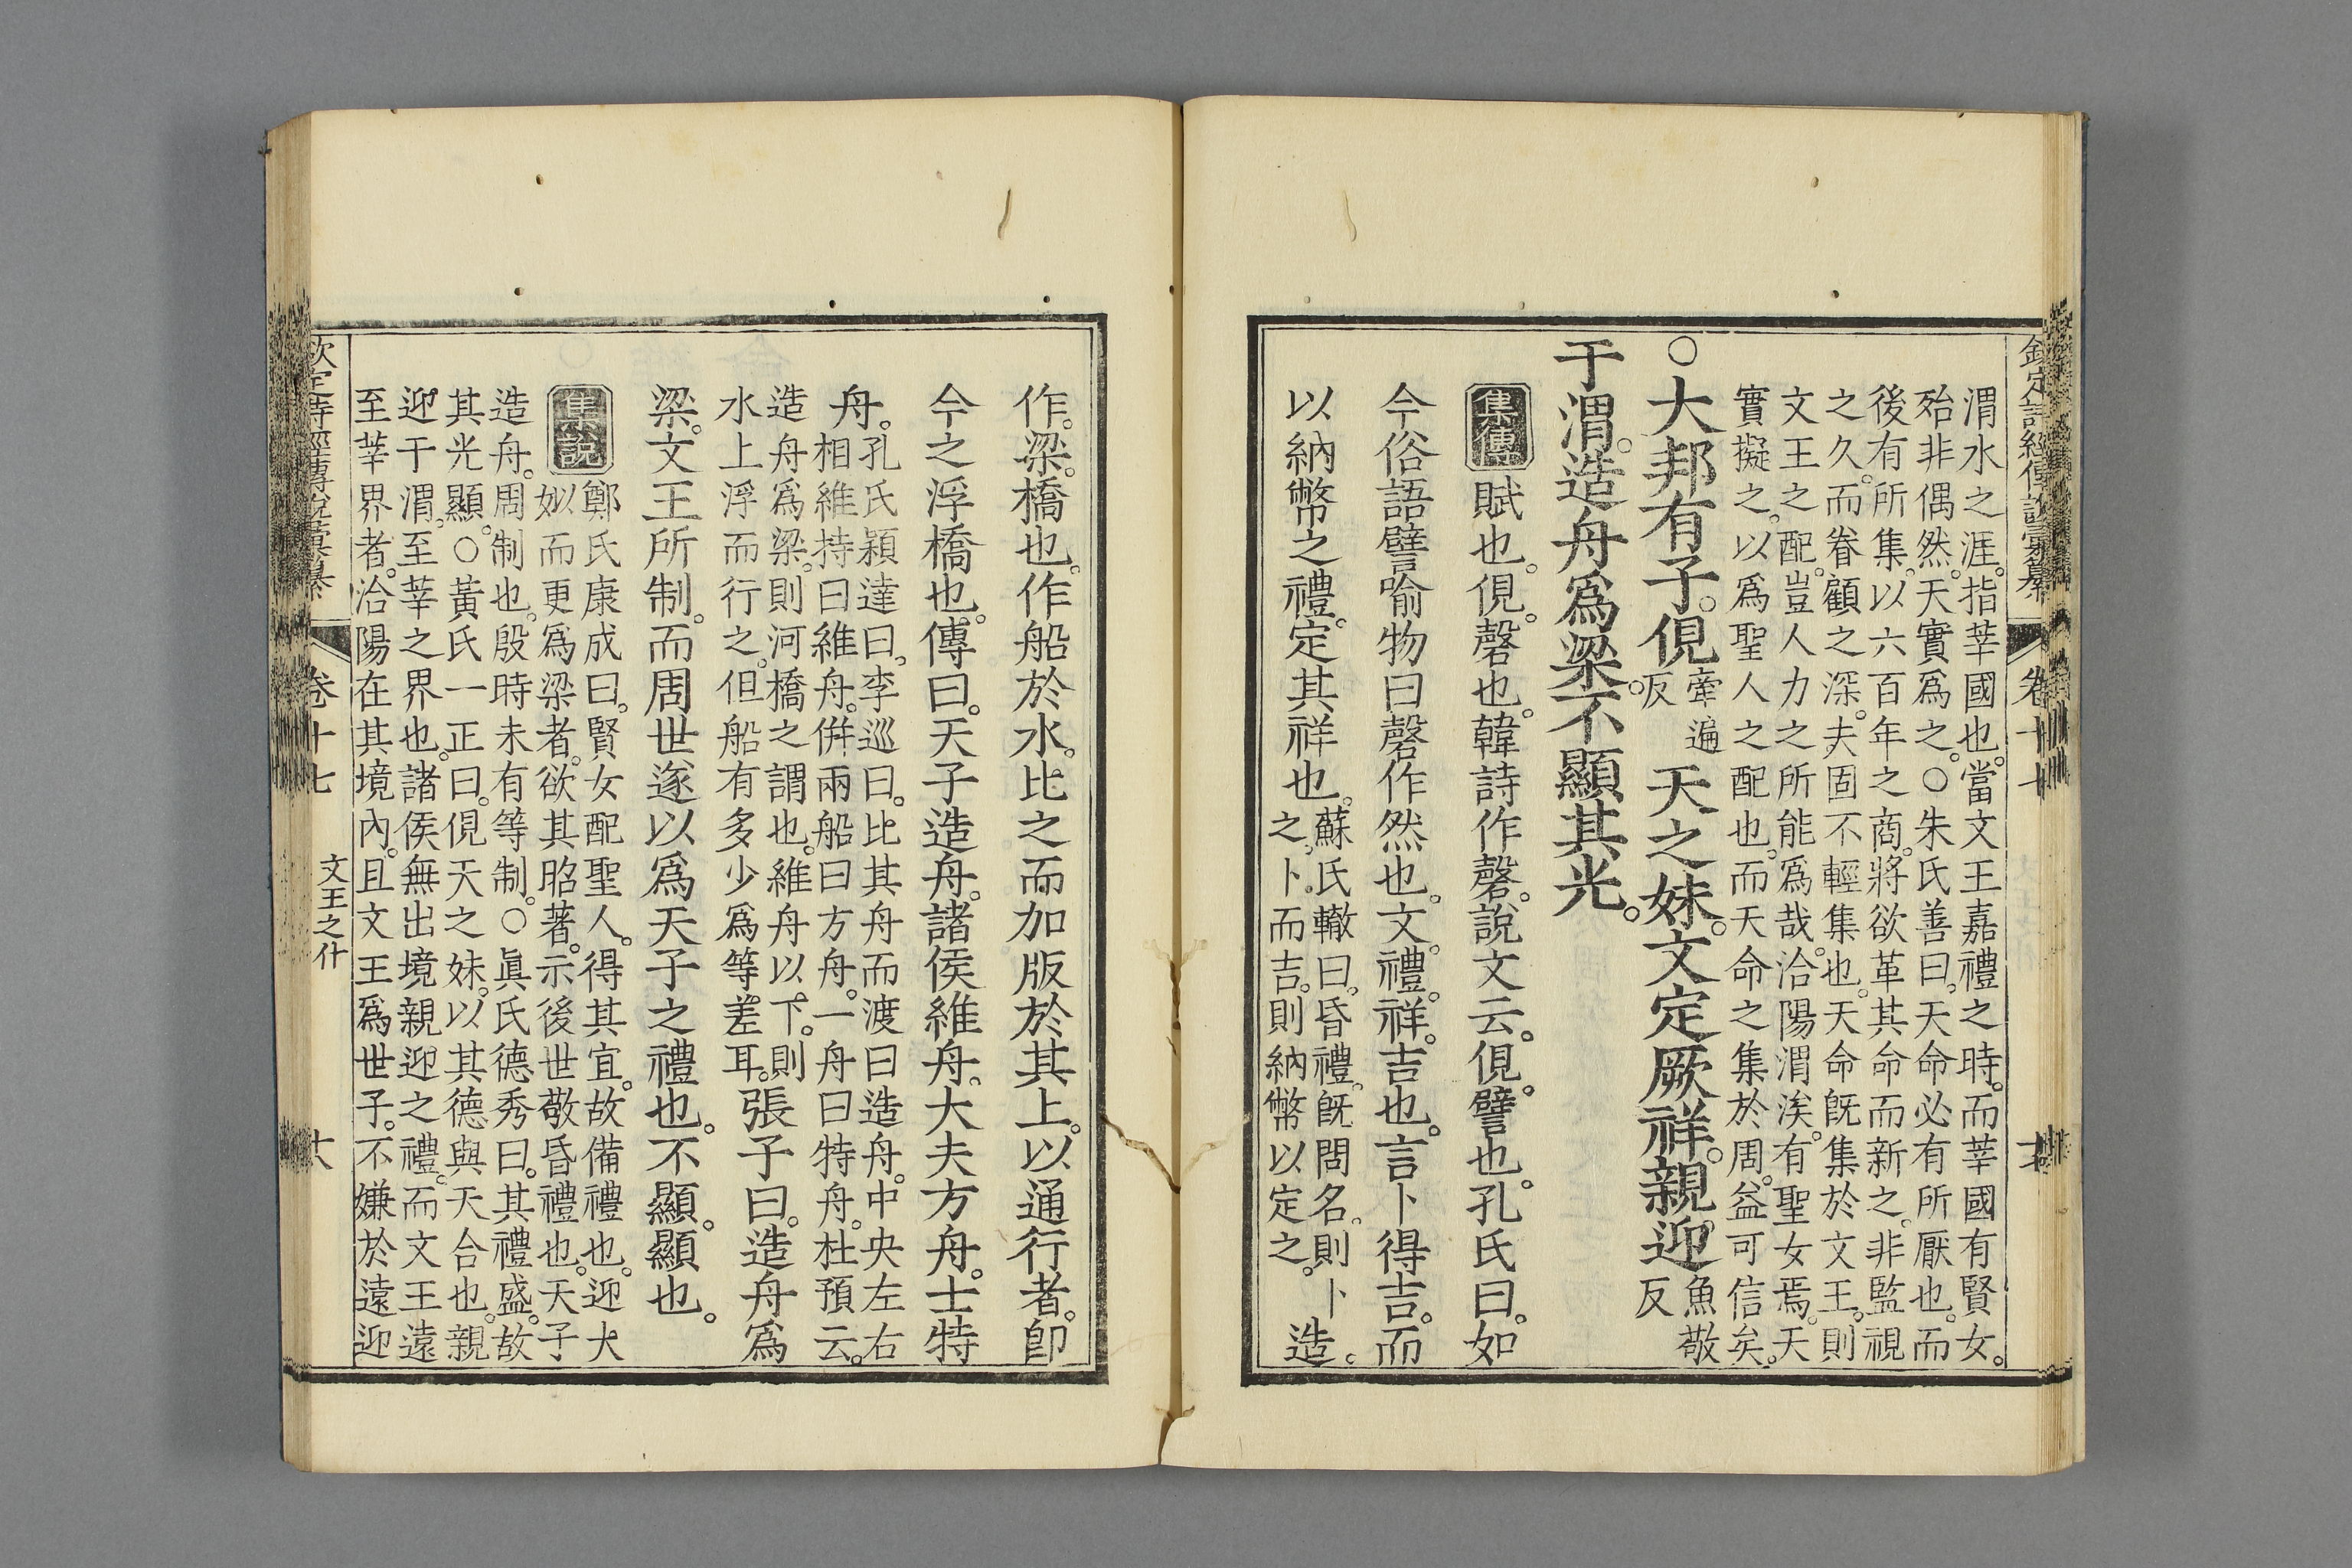 渭水之涯。指莘國也。當文王嘉禮之時。而莘國有賢女。
殆非偶然。天實爲之。○朱氏善曰。天命必有所厭也。而
後有所集。以六百年之商。將欲革其命而新之。非監視
之久。而眷顧之深。夫固不輕集也。天命旣集於文王。則
文王之配。豈人力之所能爲哉。洽陽渭涘。有聖女焉。天
實擬之。以爲聖人之配也。而天命之集於周。益可信矣。
○大邦有子。俔牽遍反天之妹。文定厥祥。親迎魚敬反
于渭。造舟爲梁。不顯其光。
集傳 賦也。俔。磬也。韓詩作磬。說文云。俔。譬也。孔氏曰。如
今俗語譬喻物曰磬作然也。文。禮。祥。吉也。言卜得吉。而
以納幣之禮。定其祥也。蘇氏轍曰。昏禮。旣問名。則卜之。卜。而吉。則納幣以定之。造。
作。梁。橋也。作船於水。比之而加版於其上。以通行者。卽
今之浮橋也。傳曰。天子造舟。諸侯維舟。大夫方舟。士特
舟。孔氏潁達曰。李巡曰。比其舟而渡曰造舟。中央左右
相維持曰維舟。併兩船曰方舟。一舟曰特舟。杜預云。
造舟爲梁。則河橋之謂也。維舟以下。則
水上浮而行之。但船有多少爲等差耳。張子曰。造舟爲
梁。文王所制。而周世遂以爲天子之禮也。不顯。顯也。
集說 鄭氏康成曰。賢女配聖人。得其宜。故備禮也。迎大
姒而更爲梁者。欲其昭著。示後世敬昏禮也。天子
造舟。周制也。殷時未有等制。○眞氏德秀曰。其禮盛。故
其光顯。○黃氏一正曰。俔天之妹。以其德與天合也。親
迎于渭。至莘之界也。諸侯無出境親迎之禮。而文王遠
至莘界者。洽陽在其境內。且文王爲世子。不嫌於遠迎
欽定詩經傳說彙纂 卷十七 文王之什